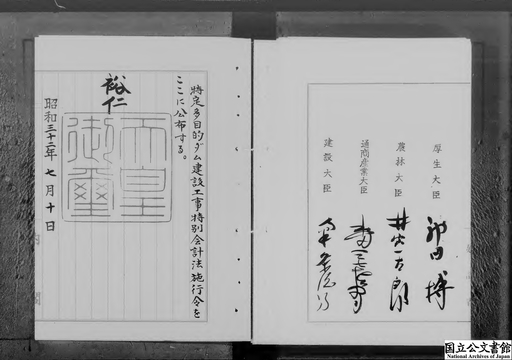 厚生大臣
神田博
農林大臣
井出一太郎
通商産業大臣
建設大臣
特定多目的ダム建設工事特別会計法施行令を
ここに公布する。
裕仁
天皇
御璽
昭和三十二年七月十日
国立公文書館
National Archives of Japan